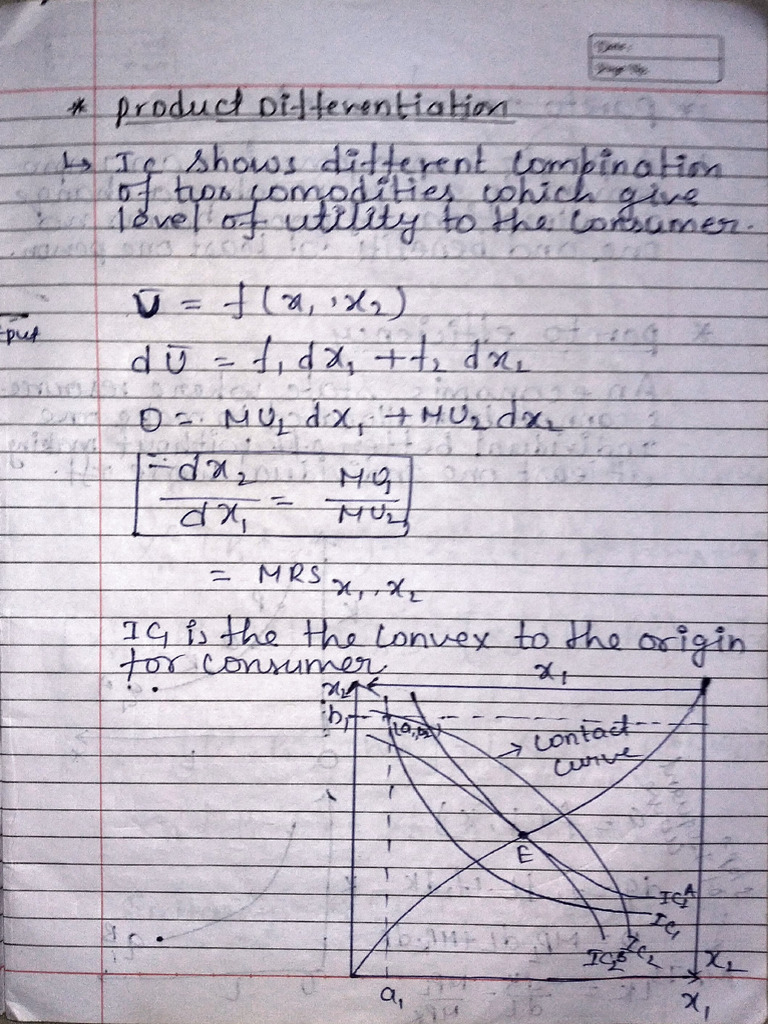 * Product Differentiation
↳ IC shows different combination
of two comodities which give
lovel of utility to the Consumer.
Ū = f(x₁, x₂)
-put
dŪ = f₁ dx₁ + f₂ dx₂
0 = MU₁ dx₁ + MU₂ dx₂
-dx₂/dx₁ = MU₁/MU₂
= MRS x₁, x₂
IC₁ is the the convex to the origin
for consumer
x₂
x₁
b₁
contact
curve
E
IC₁ᴬ
IC₁
IC₂
x₂
a₁
x₁